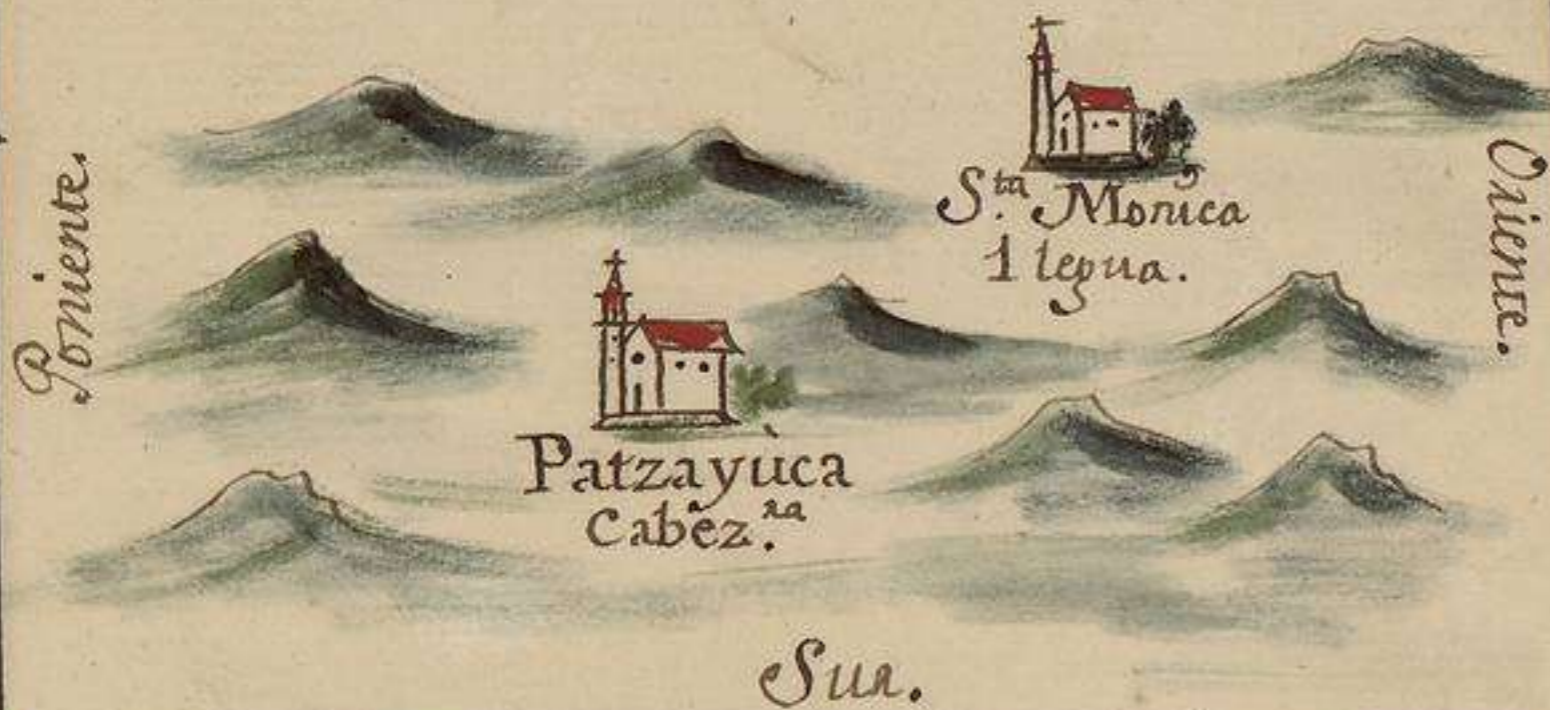 Poniente.
S.ta Monica
1 legua.
Oriente.
Patzayùca
Cabez.ra
Sur.